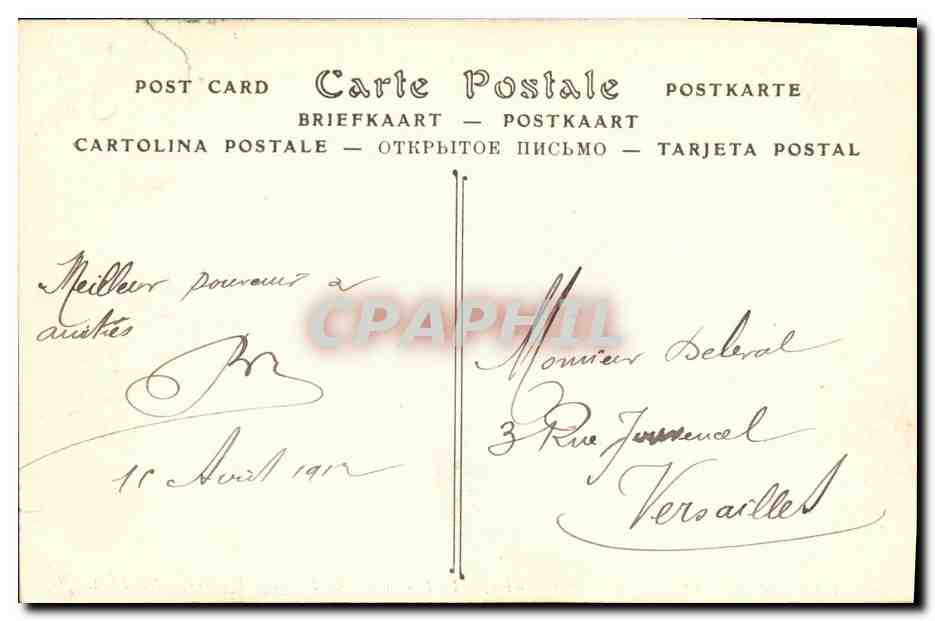 POST CARD Carte Postale POSTKARTE
BRIEFKAART — POSTKAART
CARTOLINA POSTALE — ОТКРЫТОЕ ПИСЬМО — TARJETA POSTAL
Meilleur souvenir &
amitiés
11 Avril 1912
Monsieur Deleval
3 Rue Jouvencel
Versailles
CPAPHIL